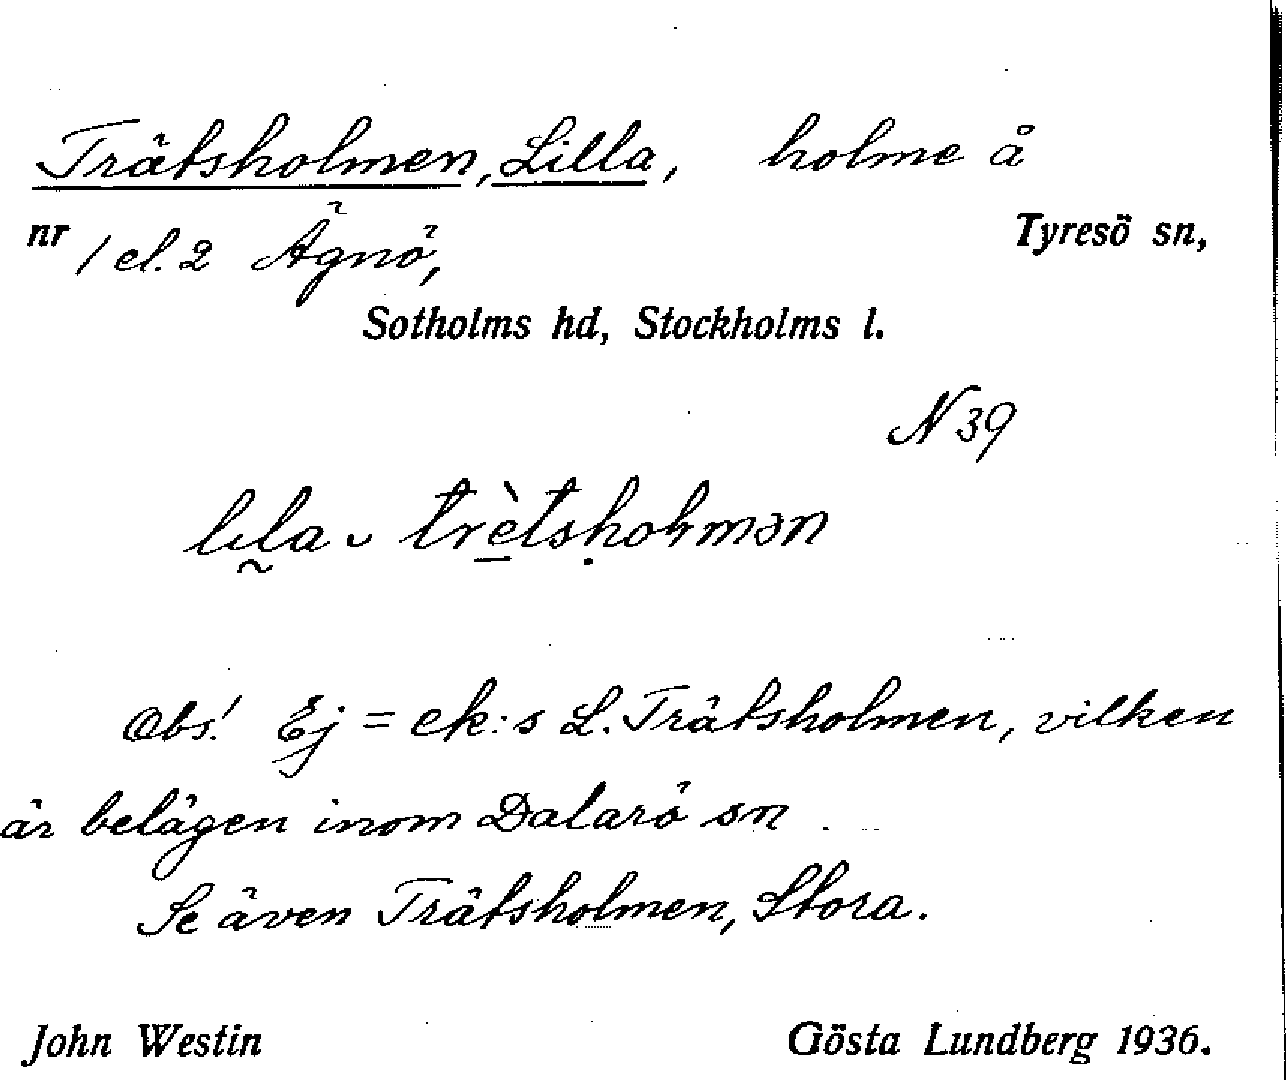 Trätsholmen, Lilla, holme å
nr 1 el. 2 Ägnö, Tyresö sn,
Sotholms hd, Stockholms l.
N 39
lila trètsholmən
Obs! Ej = ek:s L. Trätsholmen, vilken
är belägen inom Dalarö sn.
Se även Trätsholmen, Stora.
John Westin Gösta Lundberg 1936.